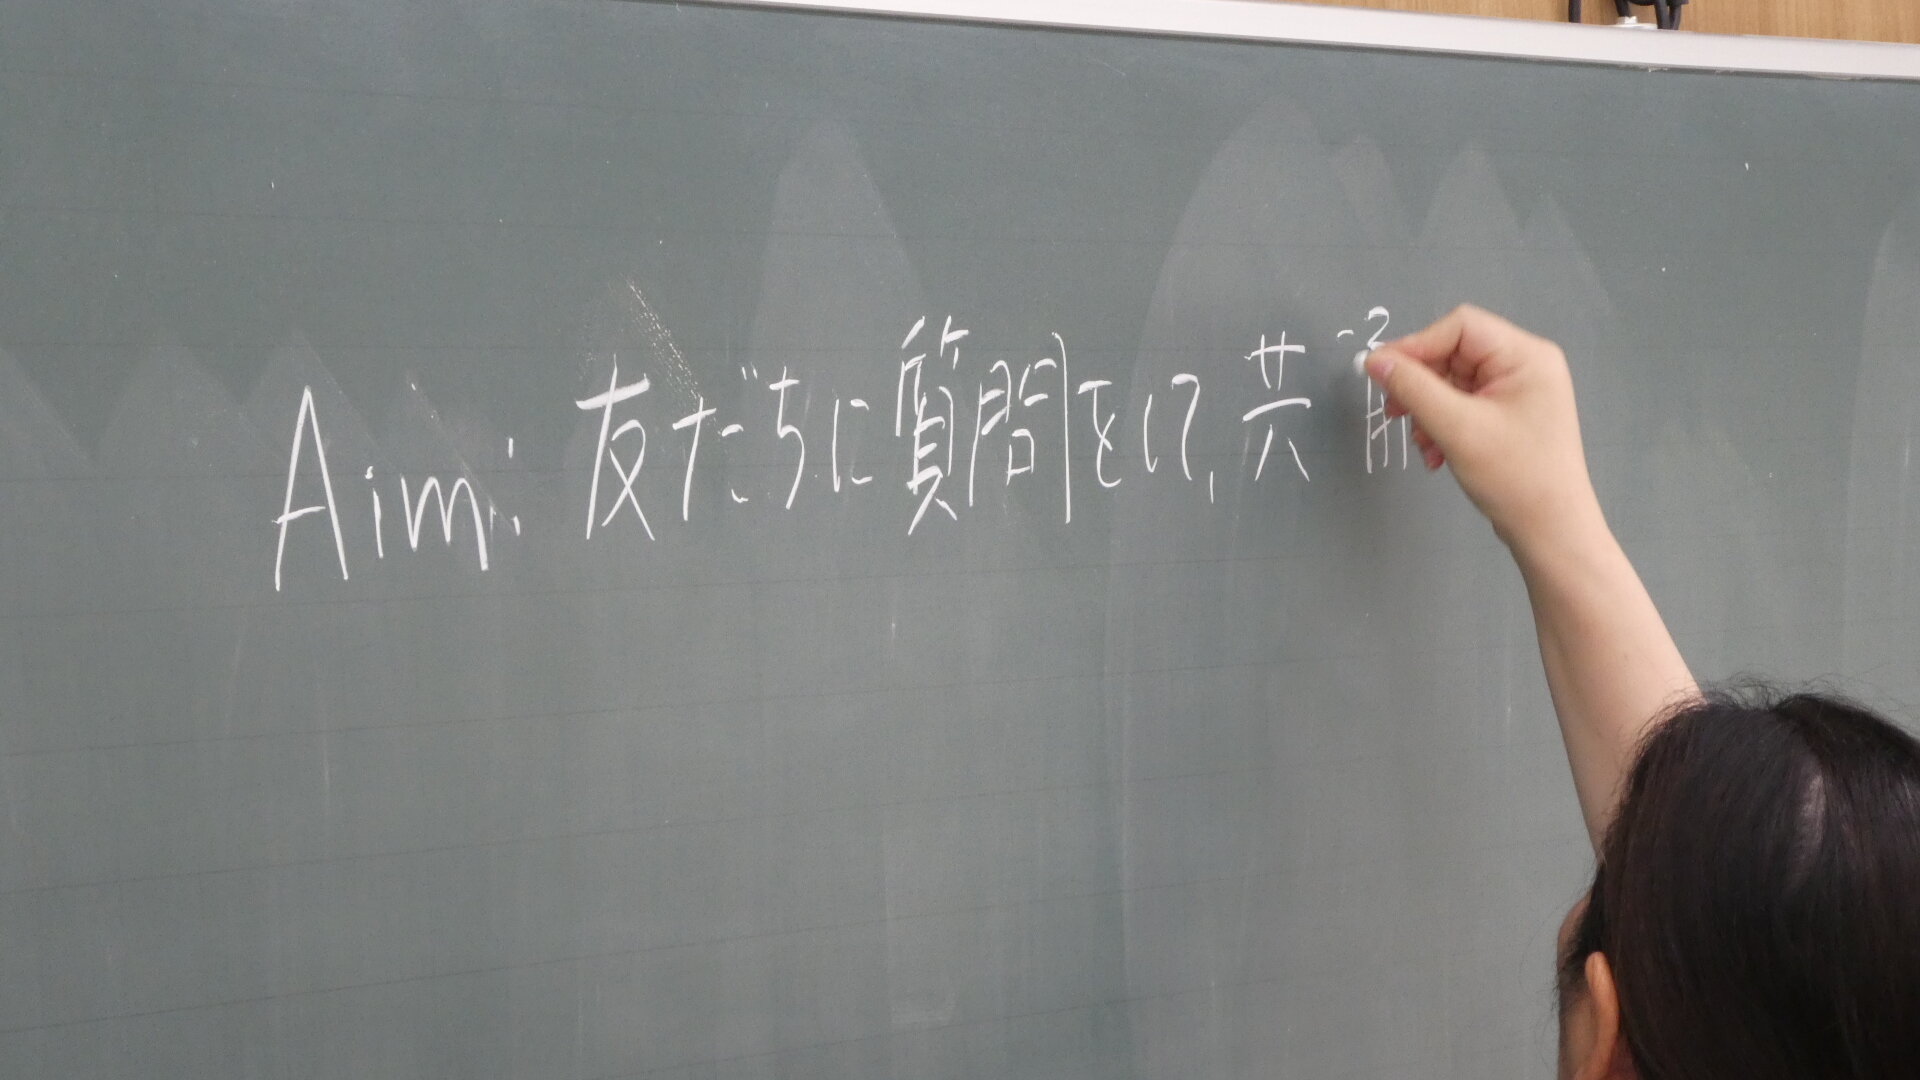 Aim: 友だちに質問をして, 共